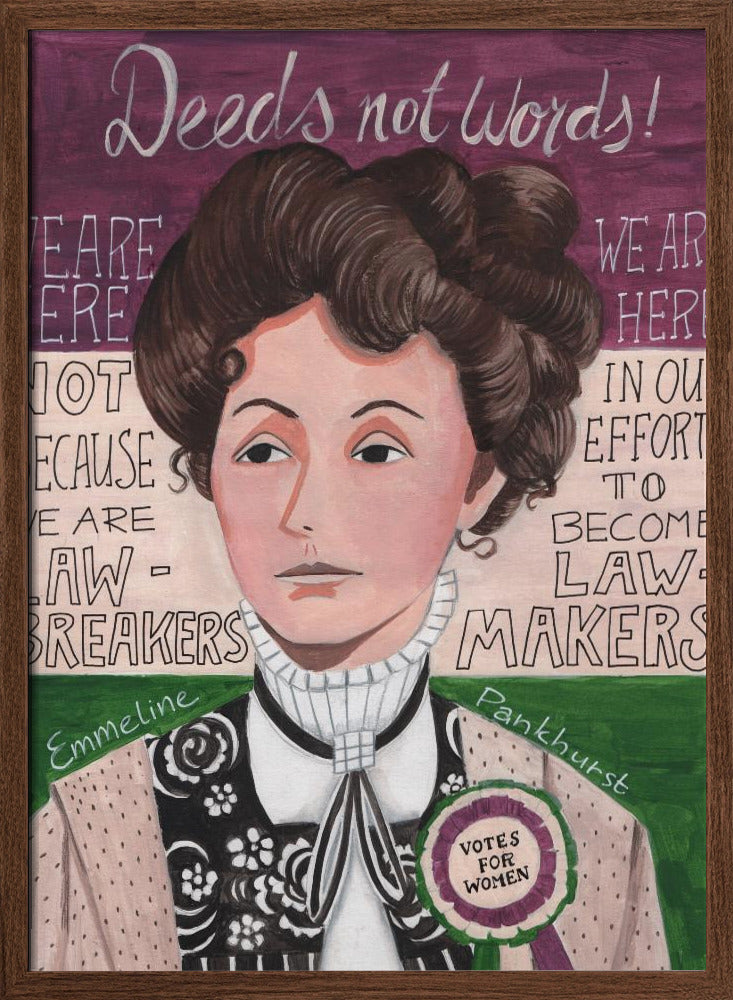 Deeds not Words!
EARE
ERE
NOT
ECAUSE
E ARE
LAW-
BREAKERS
WE AR
HER
IN OU
EFFORT
TO
BECOME
LAW-
MAKERS
Emmeline Pankhurst
VOTES
FOR
WOMEN